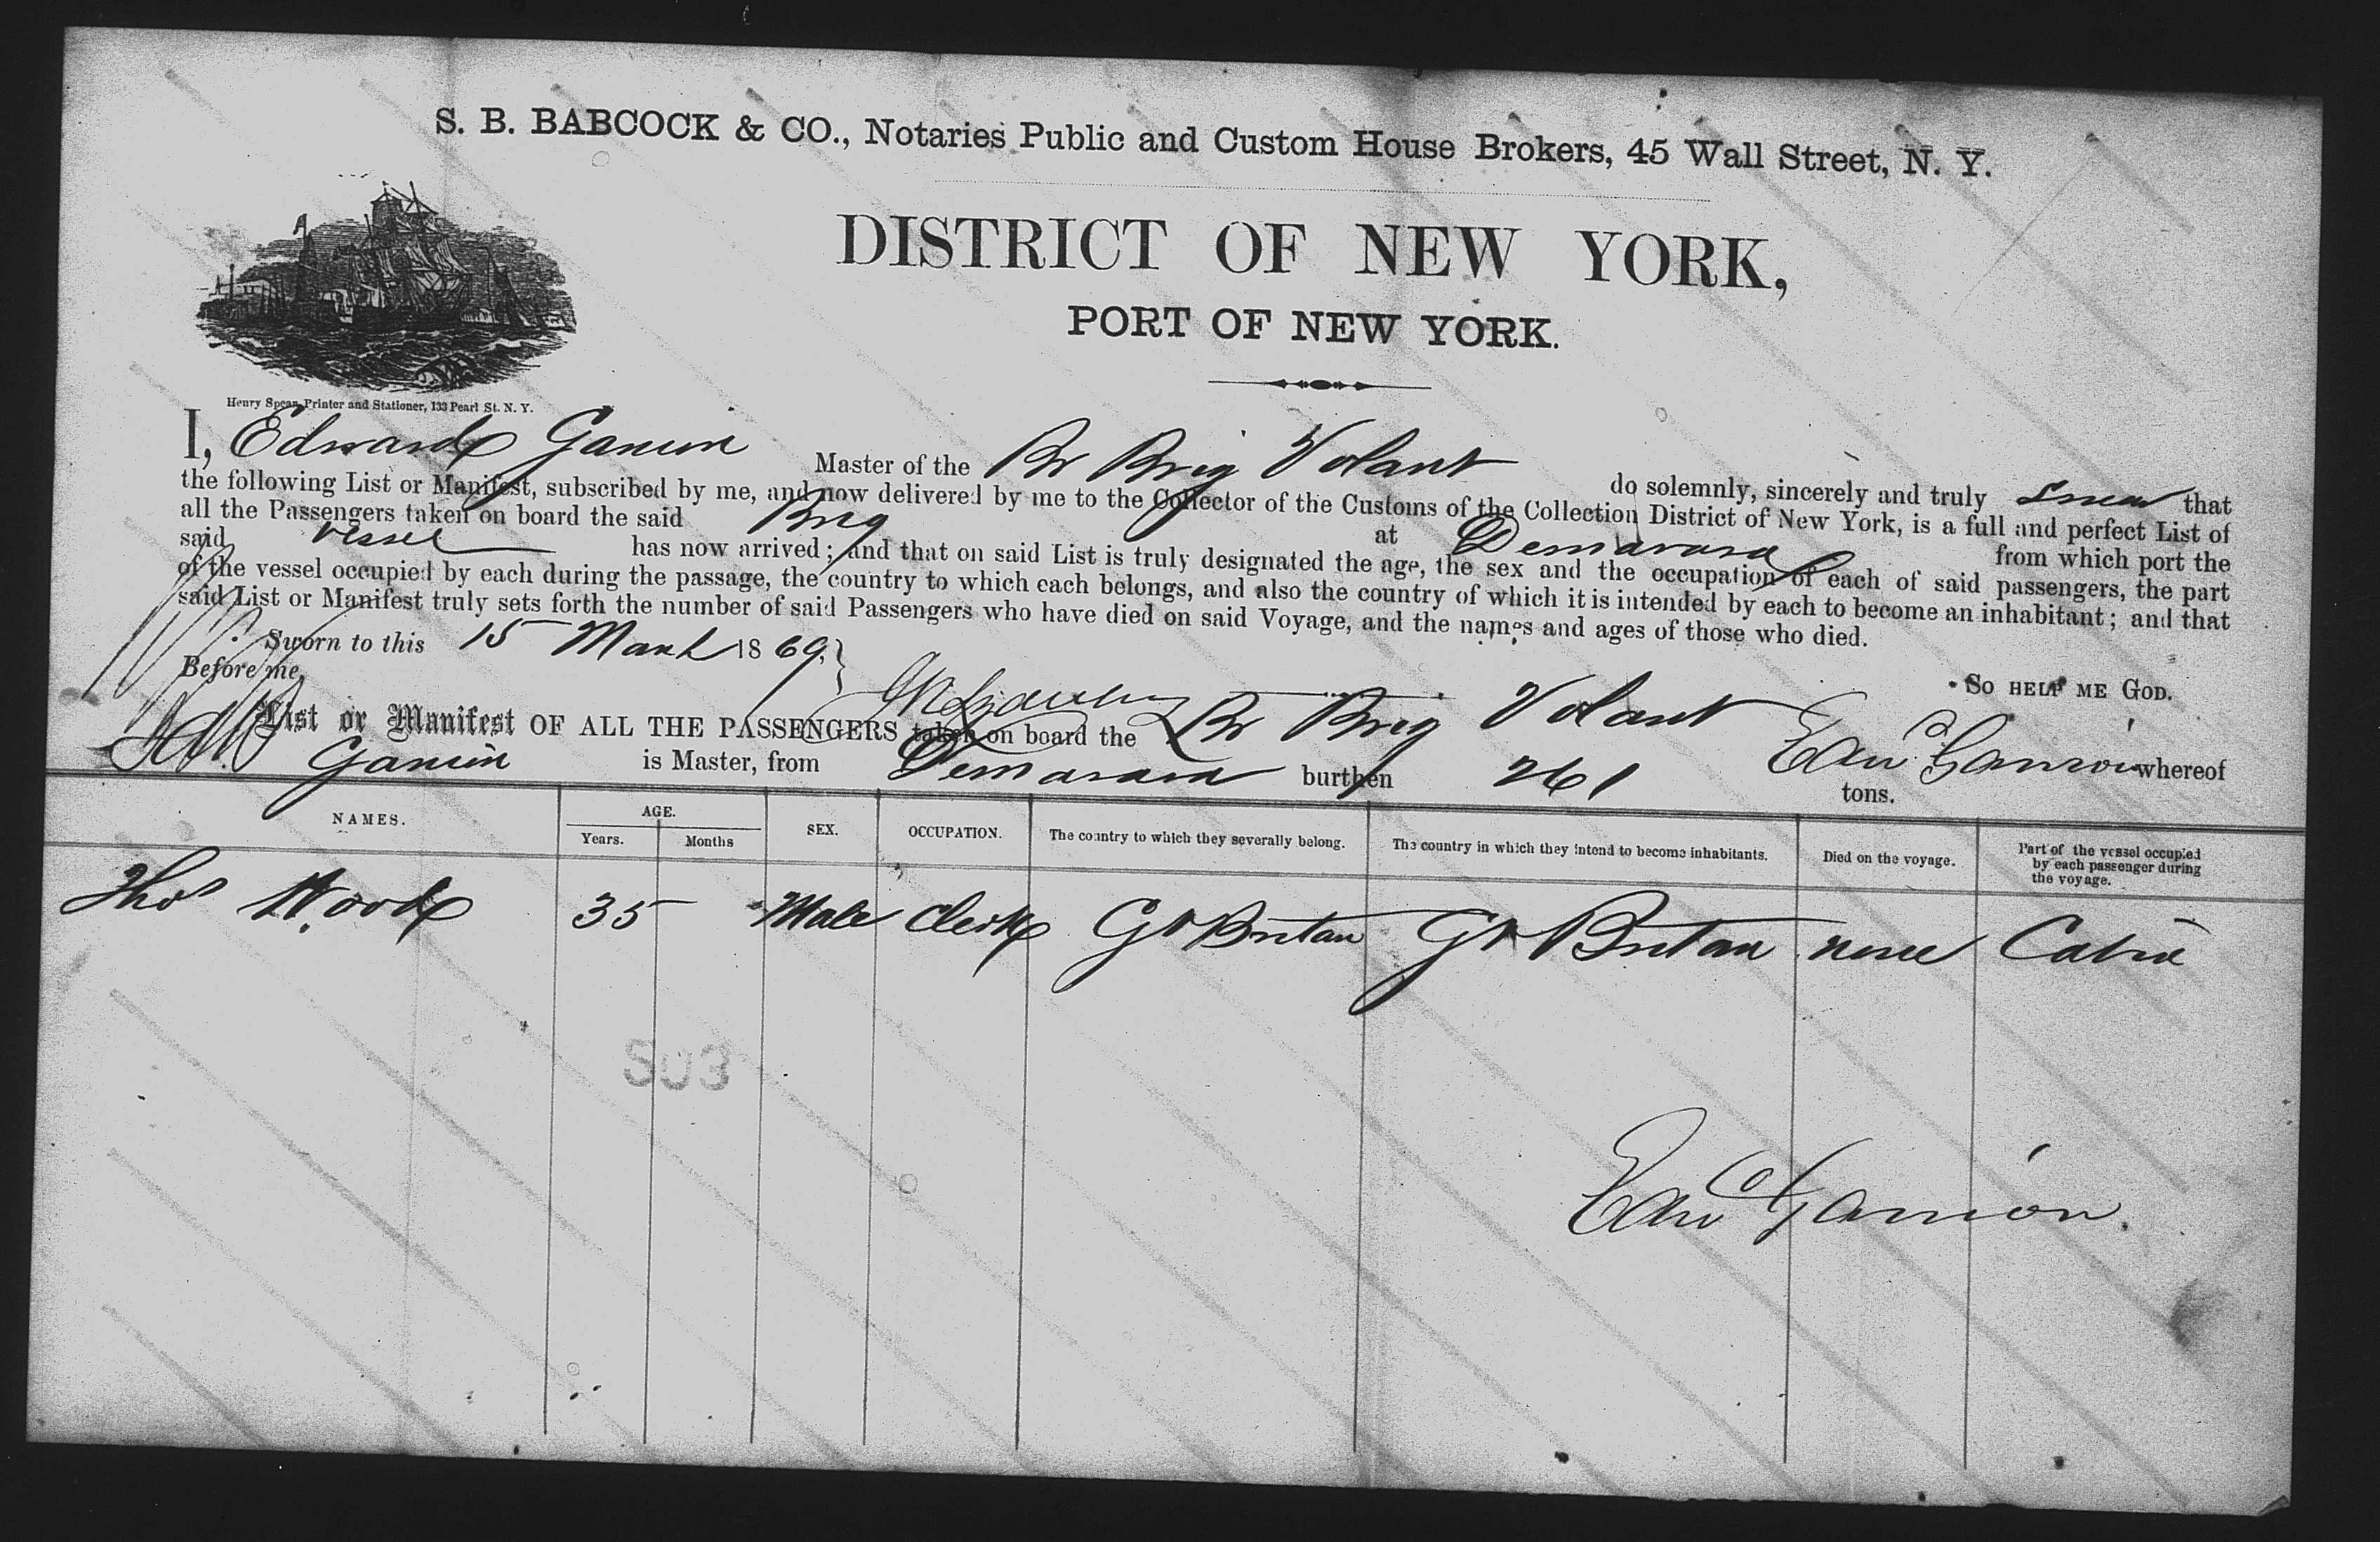 S. B. BABCOCK & CO., Notaries Public and Custom House Brokers, 45 Wall Street, N. Y.
DISTRICT OF NEW YORK,
PORT OF NEW YORK.
Henry Spear, Printer and Stationer, 133 Pearl St. N. Y.
I, Edward Master of the Br Brig Volant do solemnly, sincerely and truly swear that
the following List or Manifest, subscribed by me, and now delivered by me to the Collector of the Customs of the Collection District of New York, is a full and perfect List of
all the Passengers taken on board the said Brig at Demarara from which port the
said vessel has now arrived; and that on said List is truly designated the age, the sex and the occupation of each of said passengers, the part
of the vessel occupied by each during the passage, the country to which each belongs, and also the country of which it is intended by each to become an inhabitant; and that
said List or Manifest truly sets forth the number of said Passengers who have died on said Voyage, and the names and ages of those who died.
Sworn to this 15 March 1869.
Before me, So HELP ME GOD.
List or Manifest OF ALL THE PASSENGERS taken on board the Br Brig Volant whereof
is Master, from Demarara burthen 261 tons.
NAMES. AGE. Years. Months SEX. OCCUPATION. The country to which they severally belong. The country in which they intend to become inhabitants. Died on the voyage. Part of the vessel occupied by each passenger during the voyage.
Thos Wood 35 Male Clerk Gt Britain Gt Britain none Cabin
803